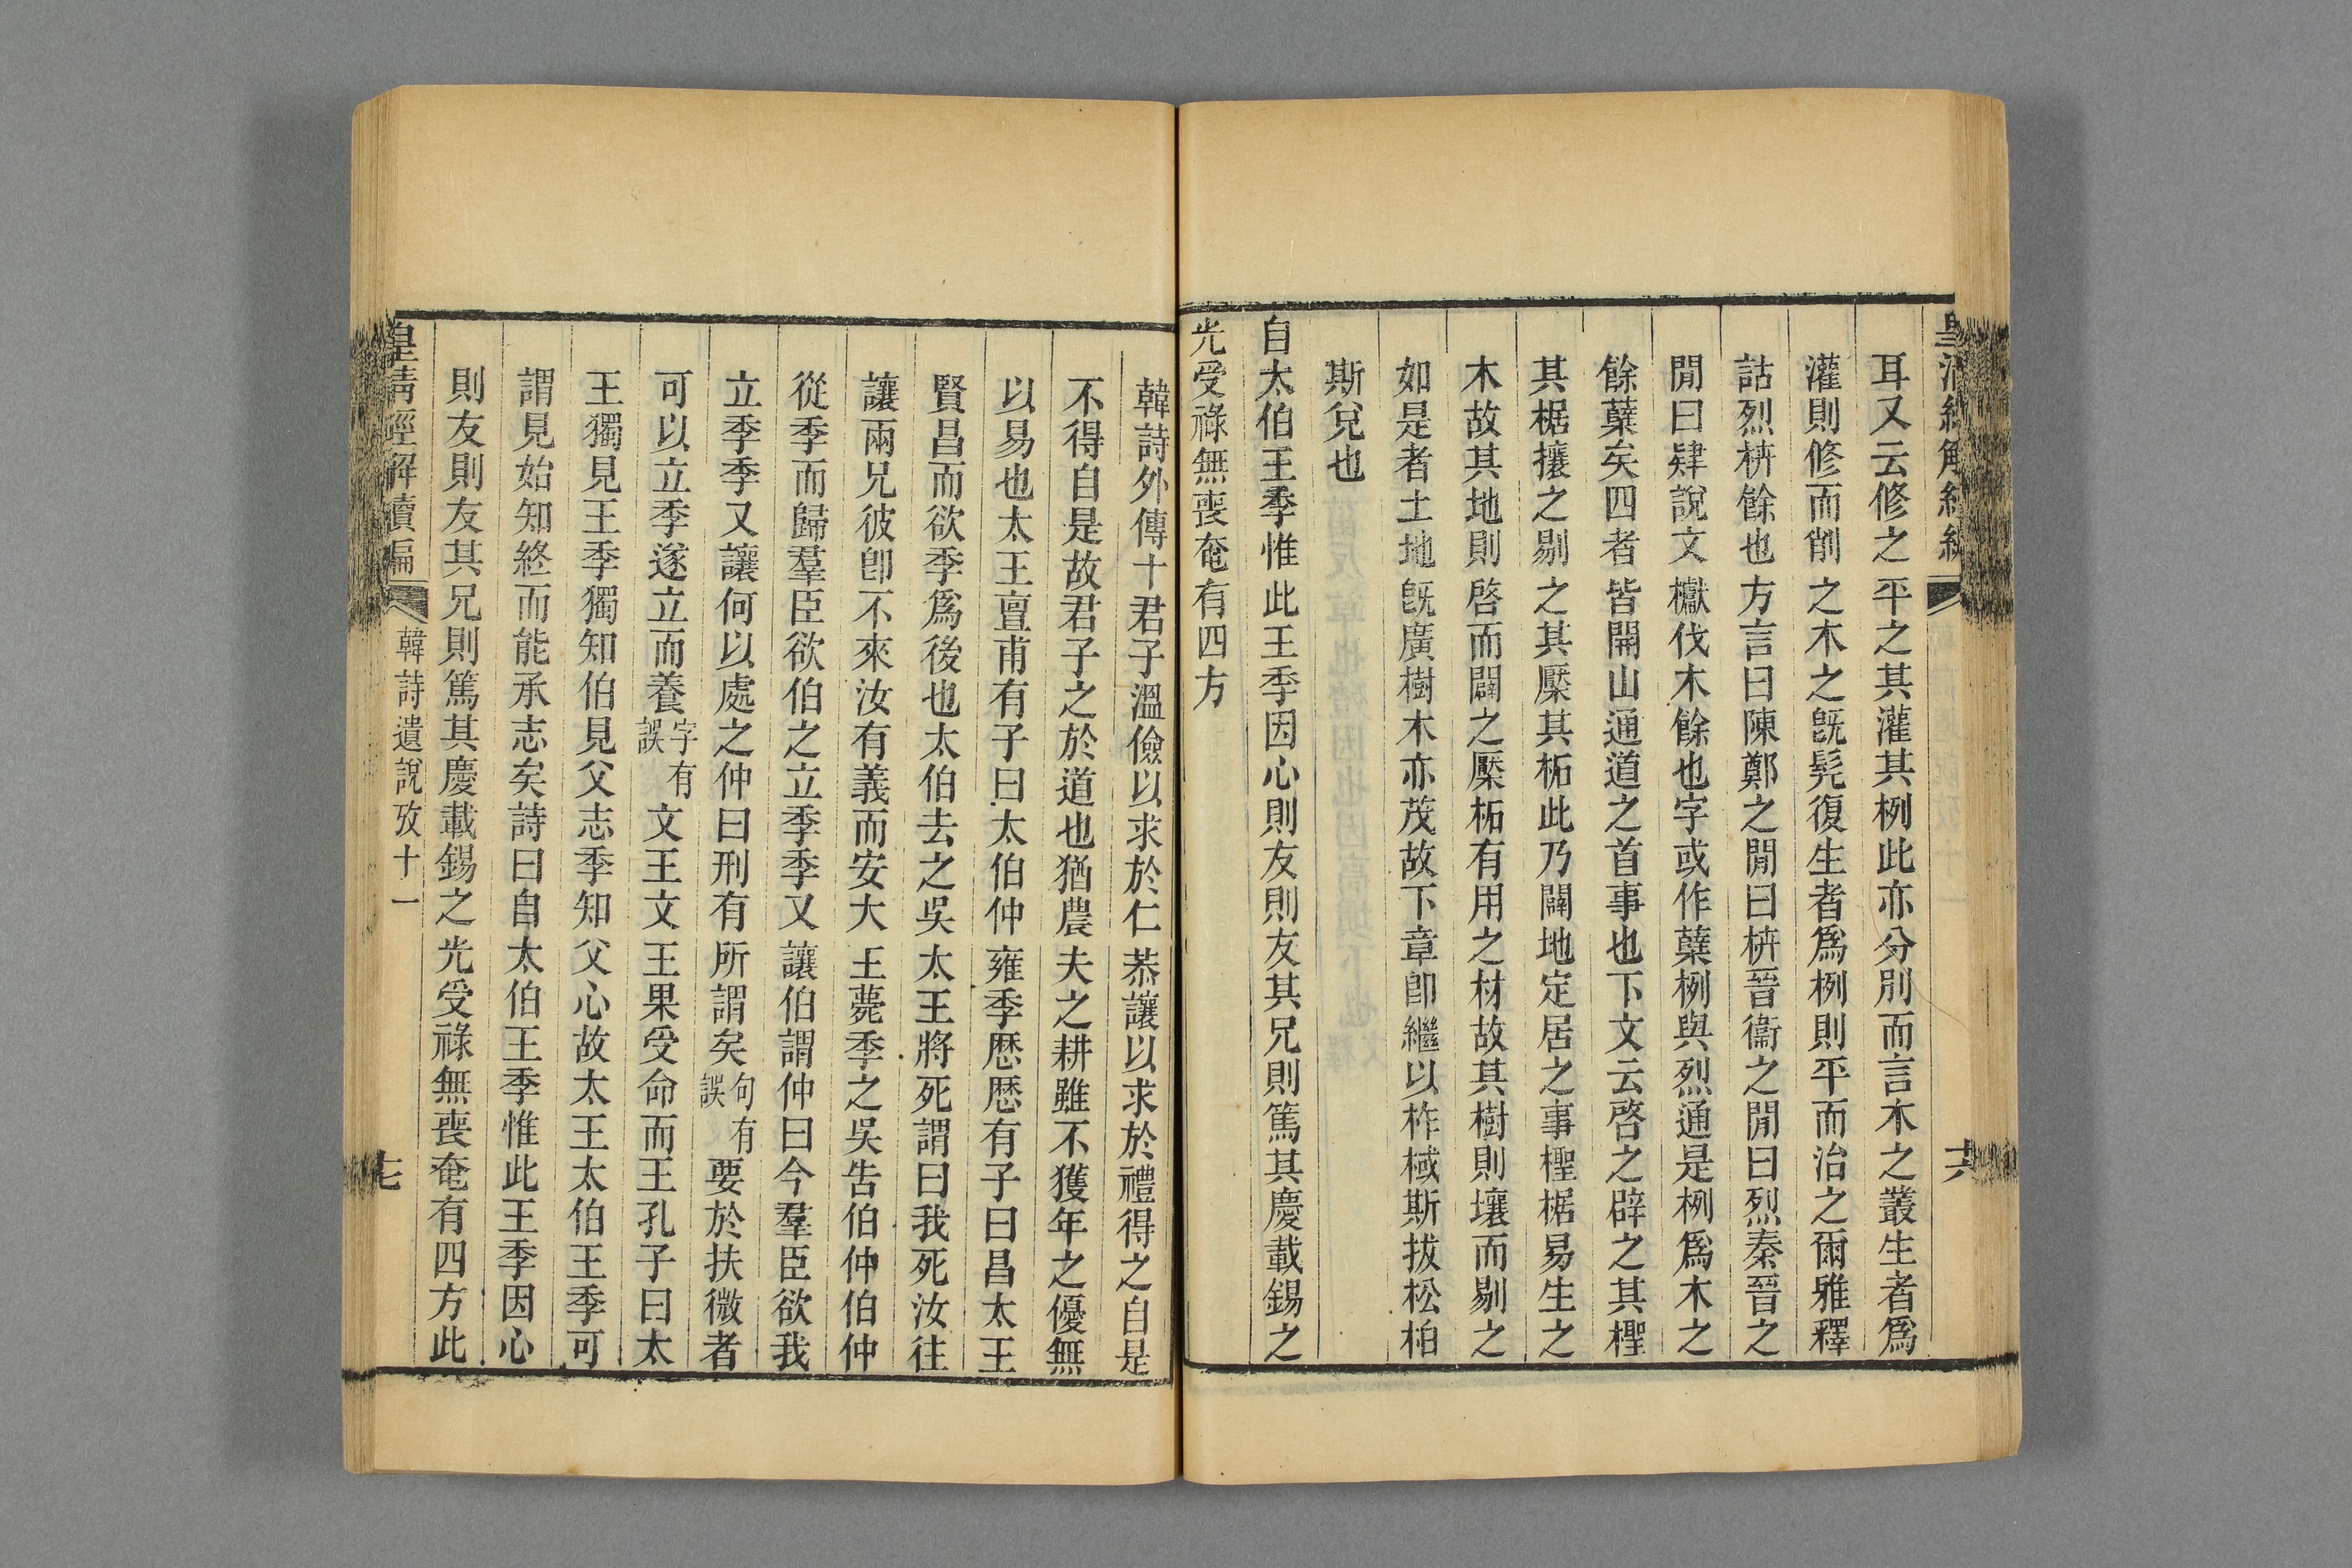 耳又云修之平之其灌其栵此亦分別而言木之叢生者爲
灌則修而削之木之旣髡復生者爲栵則平而治之爾雅釋
詁烈枿餘也方言曰陳鄭之閒曰枿晉衞之閒曰烈秦晉之
閒曰肄說文櫱伐木餘也字或作蘖栵與烈通是栵爲木之
餘蘖矣四者皆開山通道之首事也下文云啓之辟之其檉
其椐攘之剔之其檿其柘此乃闢地定居之事檉椐易生之
木故其地則啓而闢之檿柘有用之材故其樹則壤而剔之
如是者土地旣廣樹木亦茂故下章卽繼以柞棫斯拔松柏
斯兌也
自太伯王季惟此王季因心則友則友其兄則篤其慶載錫之
光受祿無喪奄有四方
韓詩外傳十君子溫儉以求於仁恭讓以求於禮得之自是
不得自是故君子之於道也猶農夫之耕雖不獲年之優無
以易也太王亶甫有子曰太伯仲雍季歷歷有子曰昌太王
賢昌而欲季爲後也太伯去之吳太王將死謂曰我死汝往
讓兩兄彼卽不來汝有義而安大王薨季之吳告伯仲伯仲
從季而歸羣臣欲伯之立季季又讓伯謂仲曰今羣臣欲我
立季季又讓何以處之仲曰刑有所謂矣句有誤要於扶微者
可以立季遂立而養字有誤文王文王果受命而王孔子曰太
王獨見王季獨知伯見父志季知父心故太王太伯王季可
謂見始知終而能承志矣詩曰自太伯王季惟此王季因心
則友則友其兄則篤其慶載錫之光受祿無喪奄有四方此
皇淸經解續編
韓詩遺說攷十一